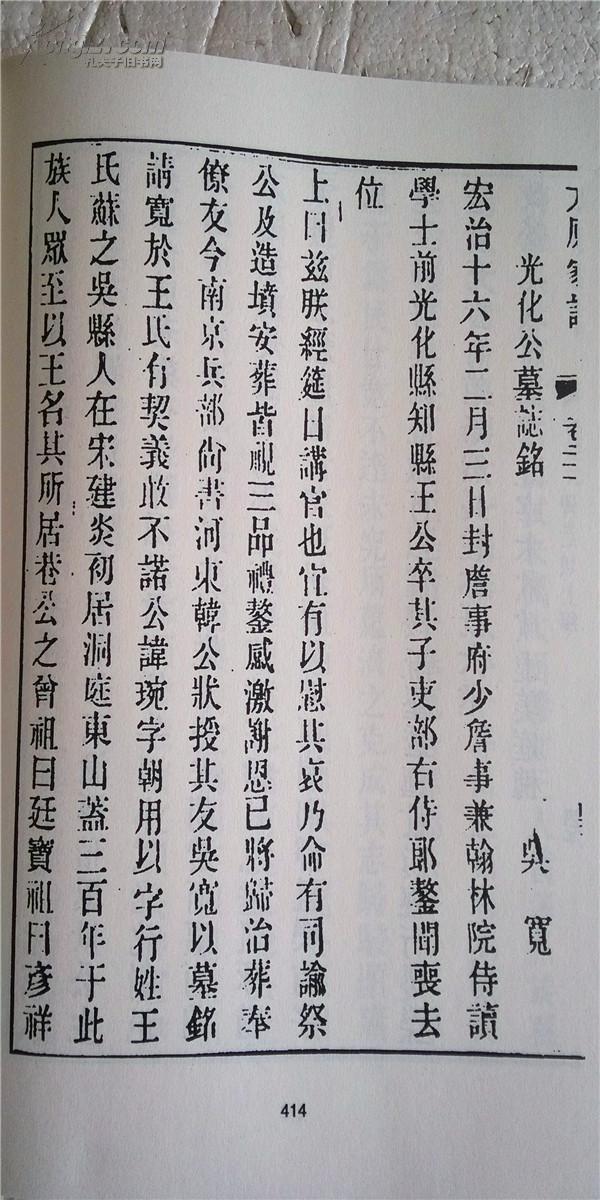 光化公墓誌銘
吳寬
宏治十六年二月三日封詹事府少詹事兼翰林院侍讀
學士前光化縣知縣王公卒其子吏部右侍郎鏊聞喪去
位
上曰茲朕經筵日講官也宜有以慰其哀乃命有司諭祭
公及造墳安葬皆視三品禮鏊感激謝恩已將歸治葬奉
僚友今南京兵部尚書河東韓公狀授其友吳寬以墓銘
請寬於王氏有契義敢不諾公諱琬字朝用以字行姓王
氏蘇之吳縣人在宋建炎初居洞庭東山蓋三百年于此
族人眾至以王名其所居巷公之曾祖曰廷寶祖曰彥祥
414
孔夫子旧书网